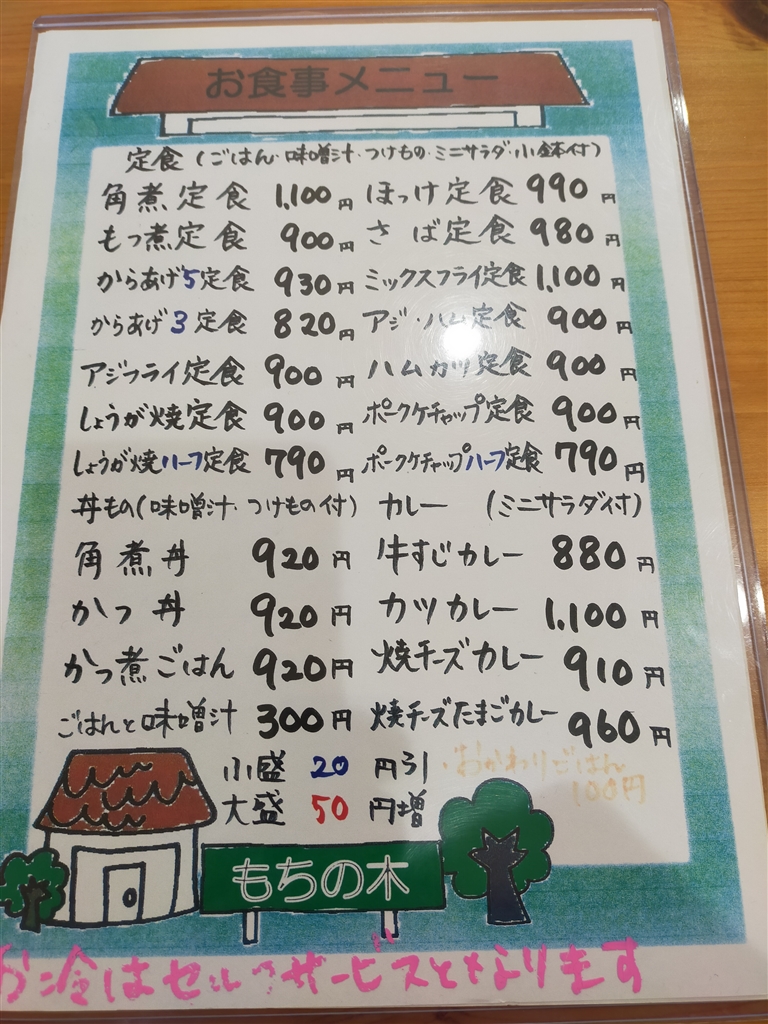 お食事メニュー
定食(ごはん・味噌汁・つけもの・ミニサラダ・小鉢付)
角煮定食 1,100円 ほっけ定食 990円
もつ煮定食 900円 さば定食 980円
からあげ5定食 930円 ミックスフライ定食 1,100円
からあげ3定食 820円 アジ・ハム定食 900円
アジフライ定食 900円 ハムカツ定食 900円
しょうが焼定食 900円 ポークケチャップ定食 900円
しょうが焼ハーフ定食 790円 ポークケチャップハーフ定食 790円
丼もの(味噌汁・つけもの付) カレー (ミニサラダ付)
角煮丼 920円 牛すじカレー 880円
かつ丼 920円 カツカレー 1,100円
かつ煮ごはん 920円 焼チーズカレー 910円
ごはんと味噌汁 300円 焼チーズたまごカレー 960円
小盛 20円引 ・おかわりごはん
大盛 50円増 100円
もちの木
お冷はセルフサービスとなります